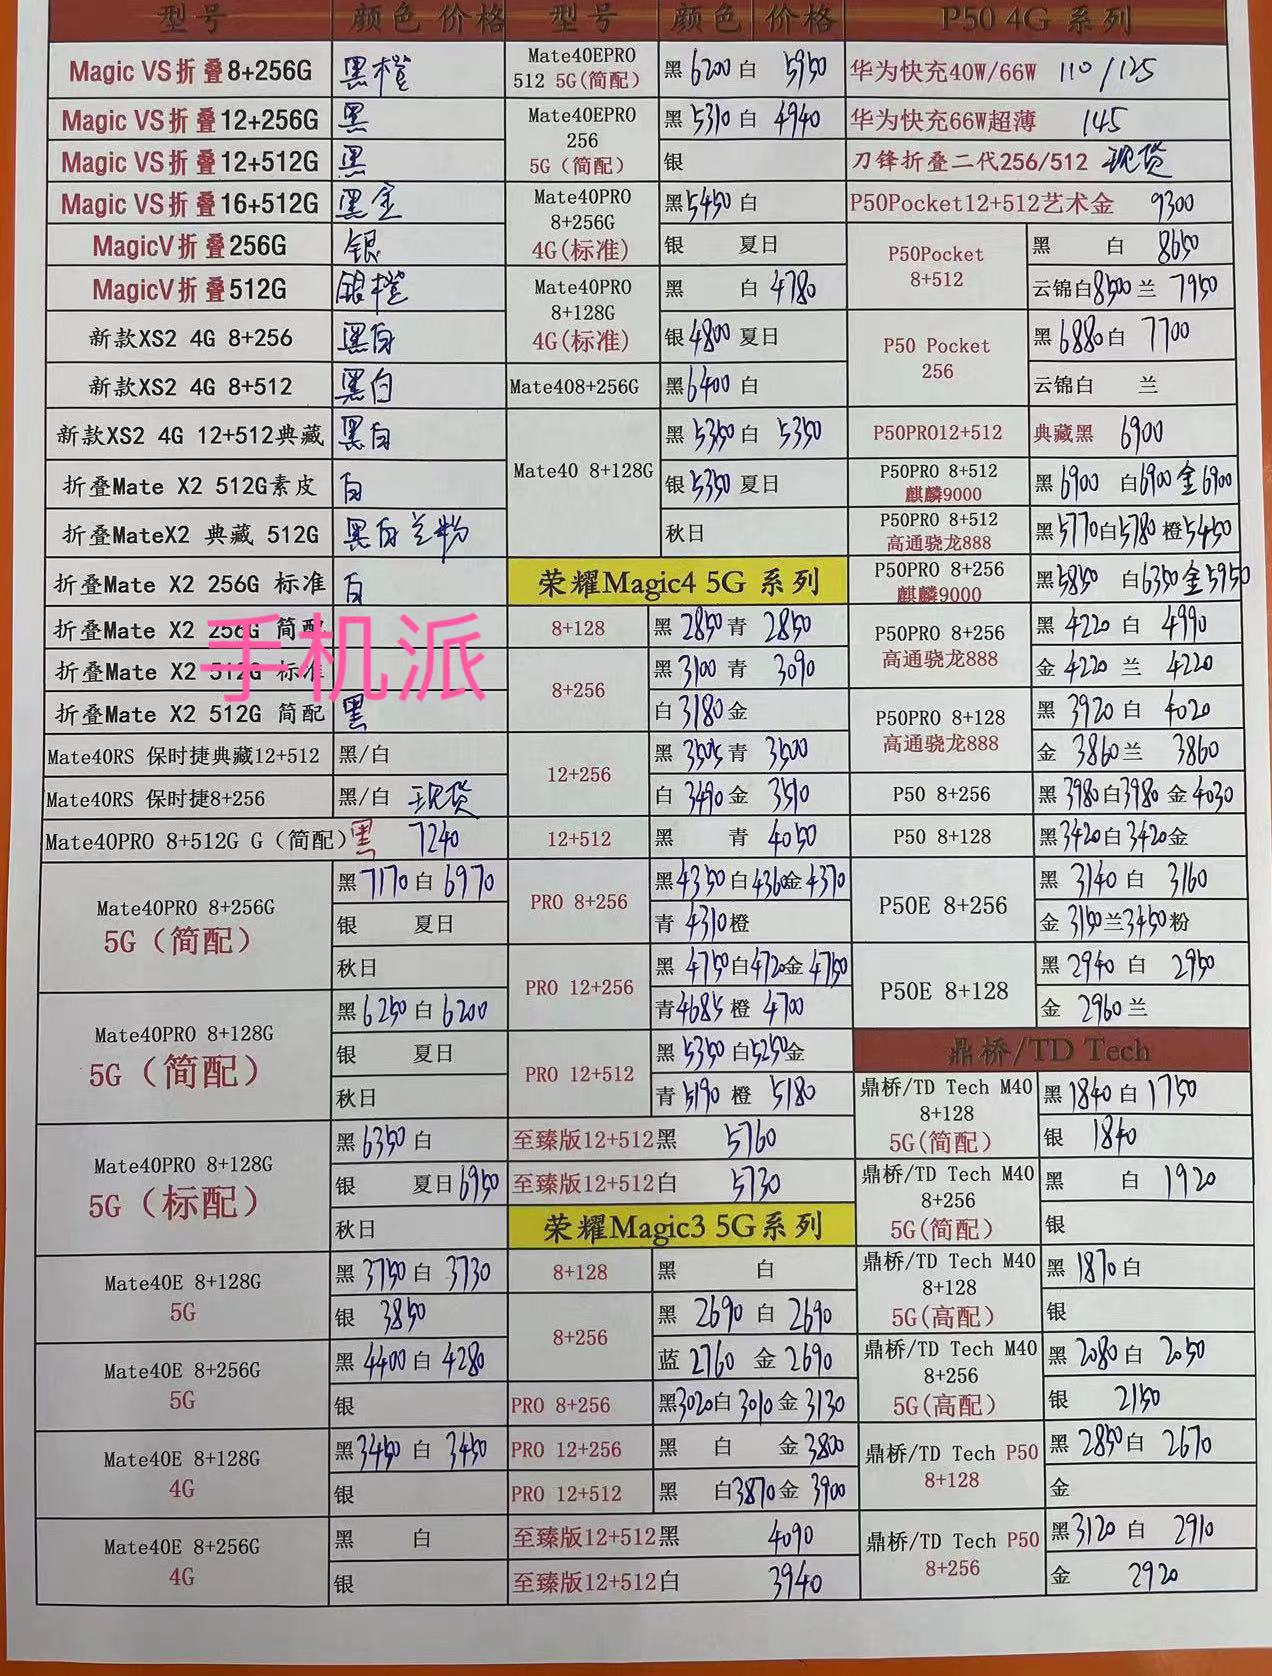 型号 颜色 价格
Magic VS折叠8+256G 黑橙
Magic VS折叠12+256G 黑
Magic VS折叠12+512G 黑
Magic VS折叠16+512G 黑金
MagicV折叠256G 银
MagicV折叠512G 银橙
新款XS2 4G 8+256 黑白
新款XS2 4G 8+512 黑白
新款XS2 4G 12+512典藏 黑白
折叠Mate X2 512G素皮 白
折叠MateX2 典藏 512G 黑白兰粉
折叠Mate X2 256G 标准 白
折叠Mate X2 256G 简配
手机派
折叠Mate X2 512G 标准
折叠Mate X2 512G 简配 黑
Mate40RS 保时捷典藏12+512 黑/白
Mate40RS 保时捷8+256 黑/白 现货
Mate40PRO 8+512G G（简配）黑 7240
Mate40PRO 8+256G
5G（简配）
黑7170白6970
银 夏日
秋日
Mate40PRO 8+128G
5G（简配）
黑6250白6200
银 夏日
秋日
Mate40PRO 8+128G
5G（标配）
黑6350白
银 夏日6950
秋日
Mate40E 8+128G
5G
黑3750白 3730
银 3850
Mate40E 8+256G
5G
黑4400白4280
银
Mate40E 8+128G
4G
黑3450白 3450
银
Mate40E 8+256G
4G
黑 白
银
型号 颜色 价格
Mate40EPRO
512 5G(简配)
黑6200白 5950
Mate40EPRO
256
5G（简配）
黑5310白4940
银
Mate40PRO
8+256G
4G(标准)
黑5450白
银 夏日
Mate40PRO
8+128G
4G(标准)
黑 白4780
银4800夏日
Mate408+256G 黑6400白
Mate40 8+128G
黑5350白5350
银5350夏日
秋日
荣耀Magic4 5G 系列
8+128 黑2850青 2850
8+256
黑3100青 3090
白3180金
12+256
黑3505青 3500
白3490金 3510
12+512 黑 青 4050
PRO 8+256
黑4350白4360金4370
青4310橙
PRO 12+256
黑4750白4720金4750
青4685橙 4700
PRO 12+512
黑5350白5250金
青5190橙 5180
至臻版12+512黑 5760
至臻版12+512白 5730
荣耀Magic3 5G系列
8+128 黑 白
8+256
黑 2690白2690
蓝2760金2690
PRO 8+256 黑3020白3010金3130
PRO 12+256 黑 白 金3800
PRO 12+512 黑 白3870金3900
至臻版12+512黑 4090
至臻版12+512白 3940
P50 4G 系列
华为快充40W/66W 110/125
华为快充66W超薄 145
刀锋折叠二代256/512 现货
P50Pocket12+512艺术金 9300
P50Pocket
8+512
黑 白 8650
云锦白8500兰 7950
P50 Pocket
256
黑6880白7700
云锦白 兰
P50PRO12+512 典藏黑 6900
P50PRO 8+512
麒麟9000
黑6900 白6900金6900
P50PRO 8+512
高通骁龙888
黑5770白5780橙5450
P50PRO 8+256
麒麟9000
黑5850 白6350金5950
P50PRO 8+256
高通骁龙888
黑4220白 4990
金4220兰 4220
P50PRO 8+128
高通骁龙888
黑3920白 4020
金 3860兰 3860
P50 8+256 黑3980白3980金4030
P50 8+128 黑3420白3420金
P50E 8+256
黑 3140白 3160
金3150兰3450粉
P50E 8+128
黑2940白 2950
金 2960兰
鼎桥/TD Tech
鼎桥/TD Tech M40
8+128
5G(简配)
黑1840白1750
银 1840
鼎桥/TD Tech M40
8+256
5G(简配)
黑 白 1920
银
鼎桥/TD Tech M40
8+128
5G(高配)
黑1870白
银
鼎桥/TD Tech M40
8+256
5G(高配)
黑2080白2050
银 2150
鼎桥/TD Tech P50
8+128
黑2850白2670
金
鼎桥/TD Tech P50
8+256
黑3120白 2910
金 2920